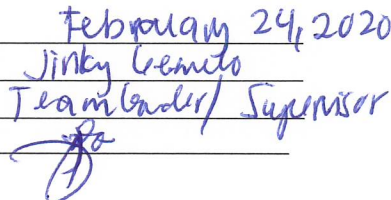 February 24, 2020
Jinky
Team Leader/ Supervisor